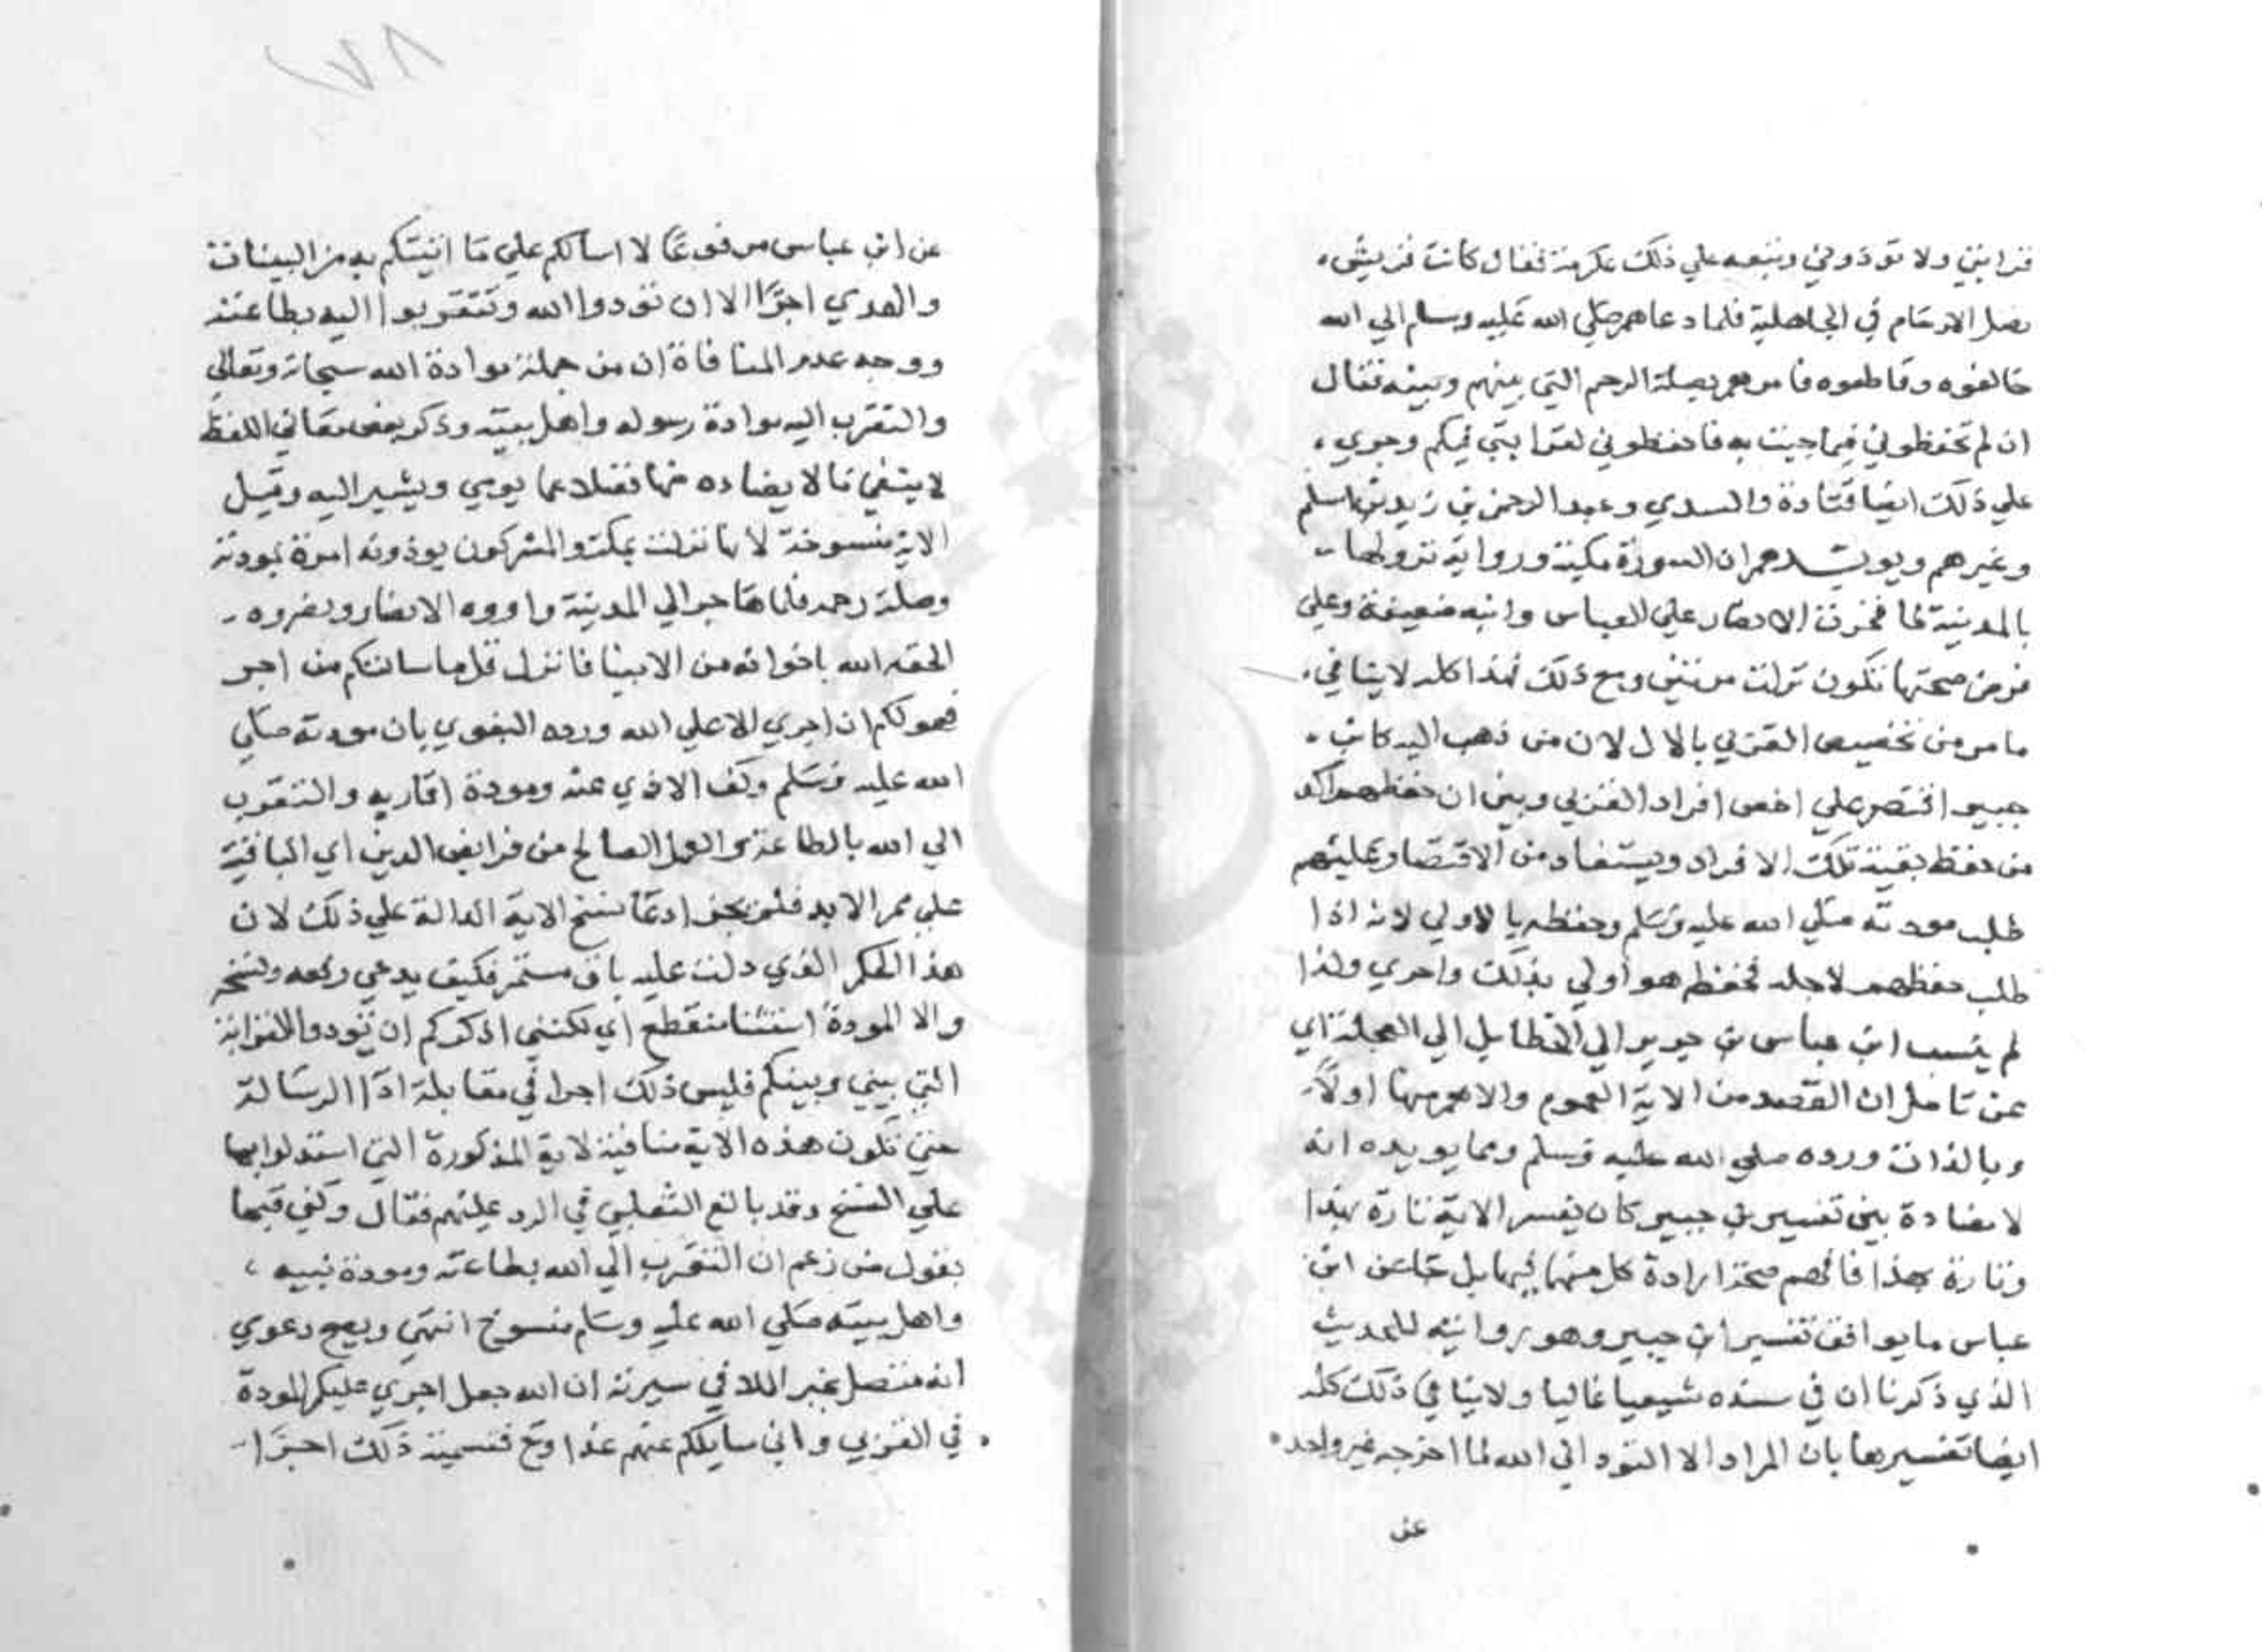 قرابتي ولا تؤذوني وتبعه علي ذلك عكرمة فقال كانت قريش
تصل الارحام في الجاهلية فلما دعاهم صلي الله عليه وسلم الي الله
خالفوه وقاطعوه فامرهم بصلة الرحم التي بينهم وبينه فقال
ان لم تحفظوني فيما جيت به فاحفظوني لقرابتي فيكم وجري
علي ذلك ايضا قتادة والسدي وعبد الرحمن بن زيد بن اسلم
وغيرهم ويويدهم ان السورة مكية ورواية نزولها
بالمدينة لما فخرت الانصار علي العباس وابنه ضعيفة وعلي
فرض صحتها تكون نزلت مرتين ومع ذلك فهذا كله لا ينافي
ما مر من تخصيص القربي بالال لان من ذهب اليه كابن
جبير اقتصر علي اخص افراد القربي وبين ان حفظهم اكد
من حفظ بقية تلك الافراد ويستفاد من الاقتصار عليهم
طلب مودته صلي الله عليه وسلم وحفظه بالاولي لانه اذا
طلب حفظهم لاجله فحفظه هو اولي بذلك واحري ولذا
لم ينسب ابن عباس بن جبير الي الخطا بل الي العجلة اي
عن تامل ان القصد من الاية العموم والاهم منها اولا
وبالذات وروده صلي الله عليه وسلم ومما يويده انه
لا مضادة بين تفسير بن جبير كان يفسر الاية تارة بهذا
وتارة بهذا فافهم صحة ارادة كل منهما فيها بل جا عن ابن
عباس ما يوافق تفسير ابن جبير وهو روايته للحديث
الذي ذكرنا ان في سنده شيعيا غاليا ولا ينافي ذلك كله
ايضا تفسيرها بان المراد الا التودد الي الله لما اخرجه غير واحد
عن
١٧٨
عن ابن عباس مرفوعا لا اسالكم علي ما اتيتكم به من البينات
والهدي اجرا الا ان تودوا الله وتتقربوا اليه بطاعته
ووجه عدم المنافاة ان من جملة موادة الله سبحانه وتعالي
والتقرب اليه موادة رسوله واهل بيته وذكر بعض معاني اللفظ
لا ينفي ما لا يضاده منها فضلا عما يومي ويشير اليه وقيل
الاية منسوخة لانها نزلت بمكة والمشركون يوذونه امرة بمودته
وصلة رحمه فلما هاجر الي المدينة واووه الانصار ونصروه
الحقه الله باخوانه من الانبيا فانزل قل ما سالتكم من اجر
فهو لكم ان اجري الا علي الله ورده البغوي بان مودته صلي
الله عليه وسلم وكف الاذي عنه ومودة اقاربه والتقرب
الي الله بالطاعة والعمل الصالح من فرايض الدين اي الباقية
علي ممر الابد فلم يجز ادعا نسخ الاية الدالة علي ذلك لان
هذا الحكم الذي دلت عليه باق مستمر فكيف يدعي رفعه ونسخه
والا المودة استثنا منقطع اي لكنني اذكركم ان تودوا القرابة
التي بيني وبينكم فليس ذلك اجرا في مقابلة ادا الرسالة
حتي تكون هذه الاية منافية لاية المذكورة التي استدلوا بها
علي النسخ وقد بالغ الثعلبي في الرد عليهم فقال وكفي قبحا
بقول من زعم ان التقرب الي الله بطاعته ومودة نبيه
واهل بيته صلي الله عليه وسلم منسوخ انتهي ويصح دعوي
انه متصل بخبر الملا في سيرته ان الله جعل اجري عليكم المودة
في القربي واني سايلكم عنهم غدا وح فتسمية ذلك اجرا